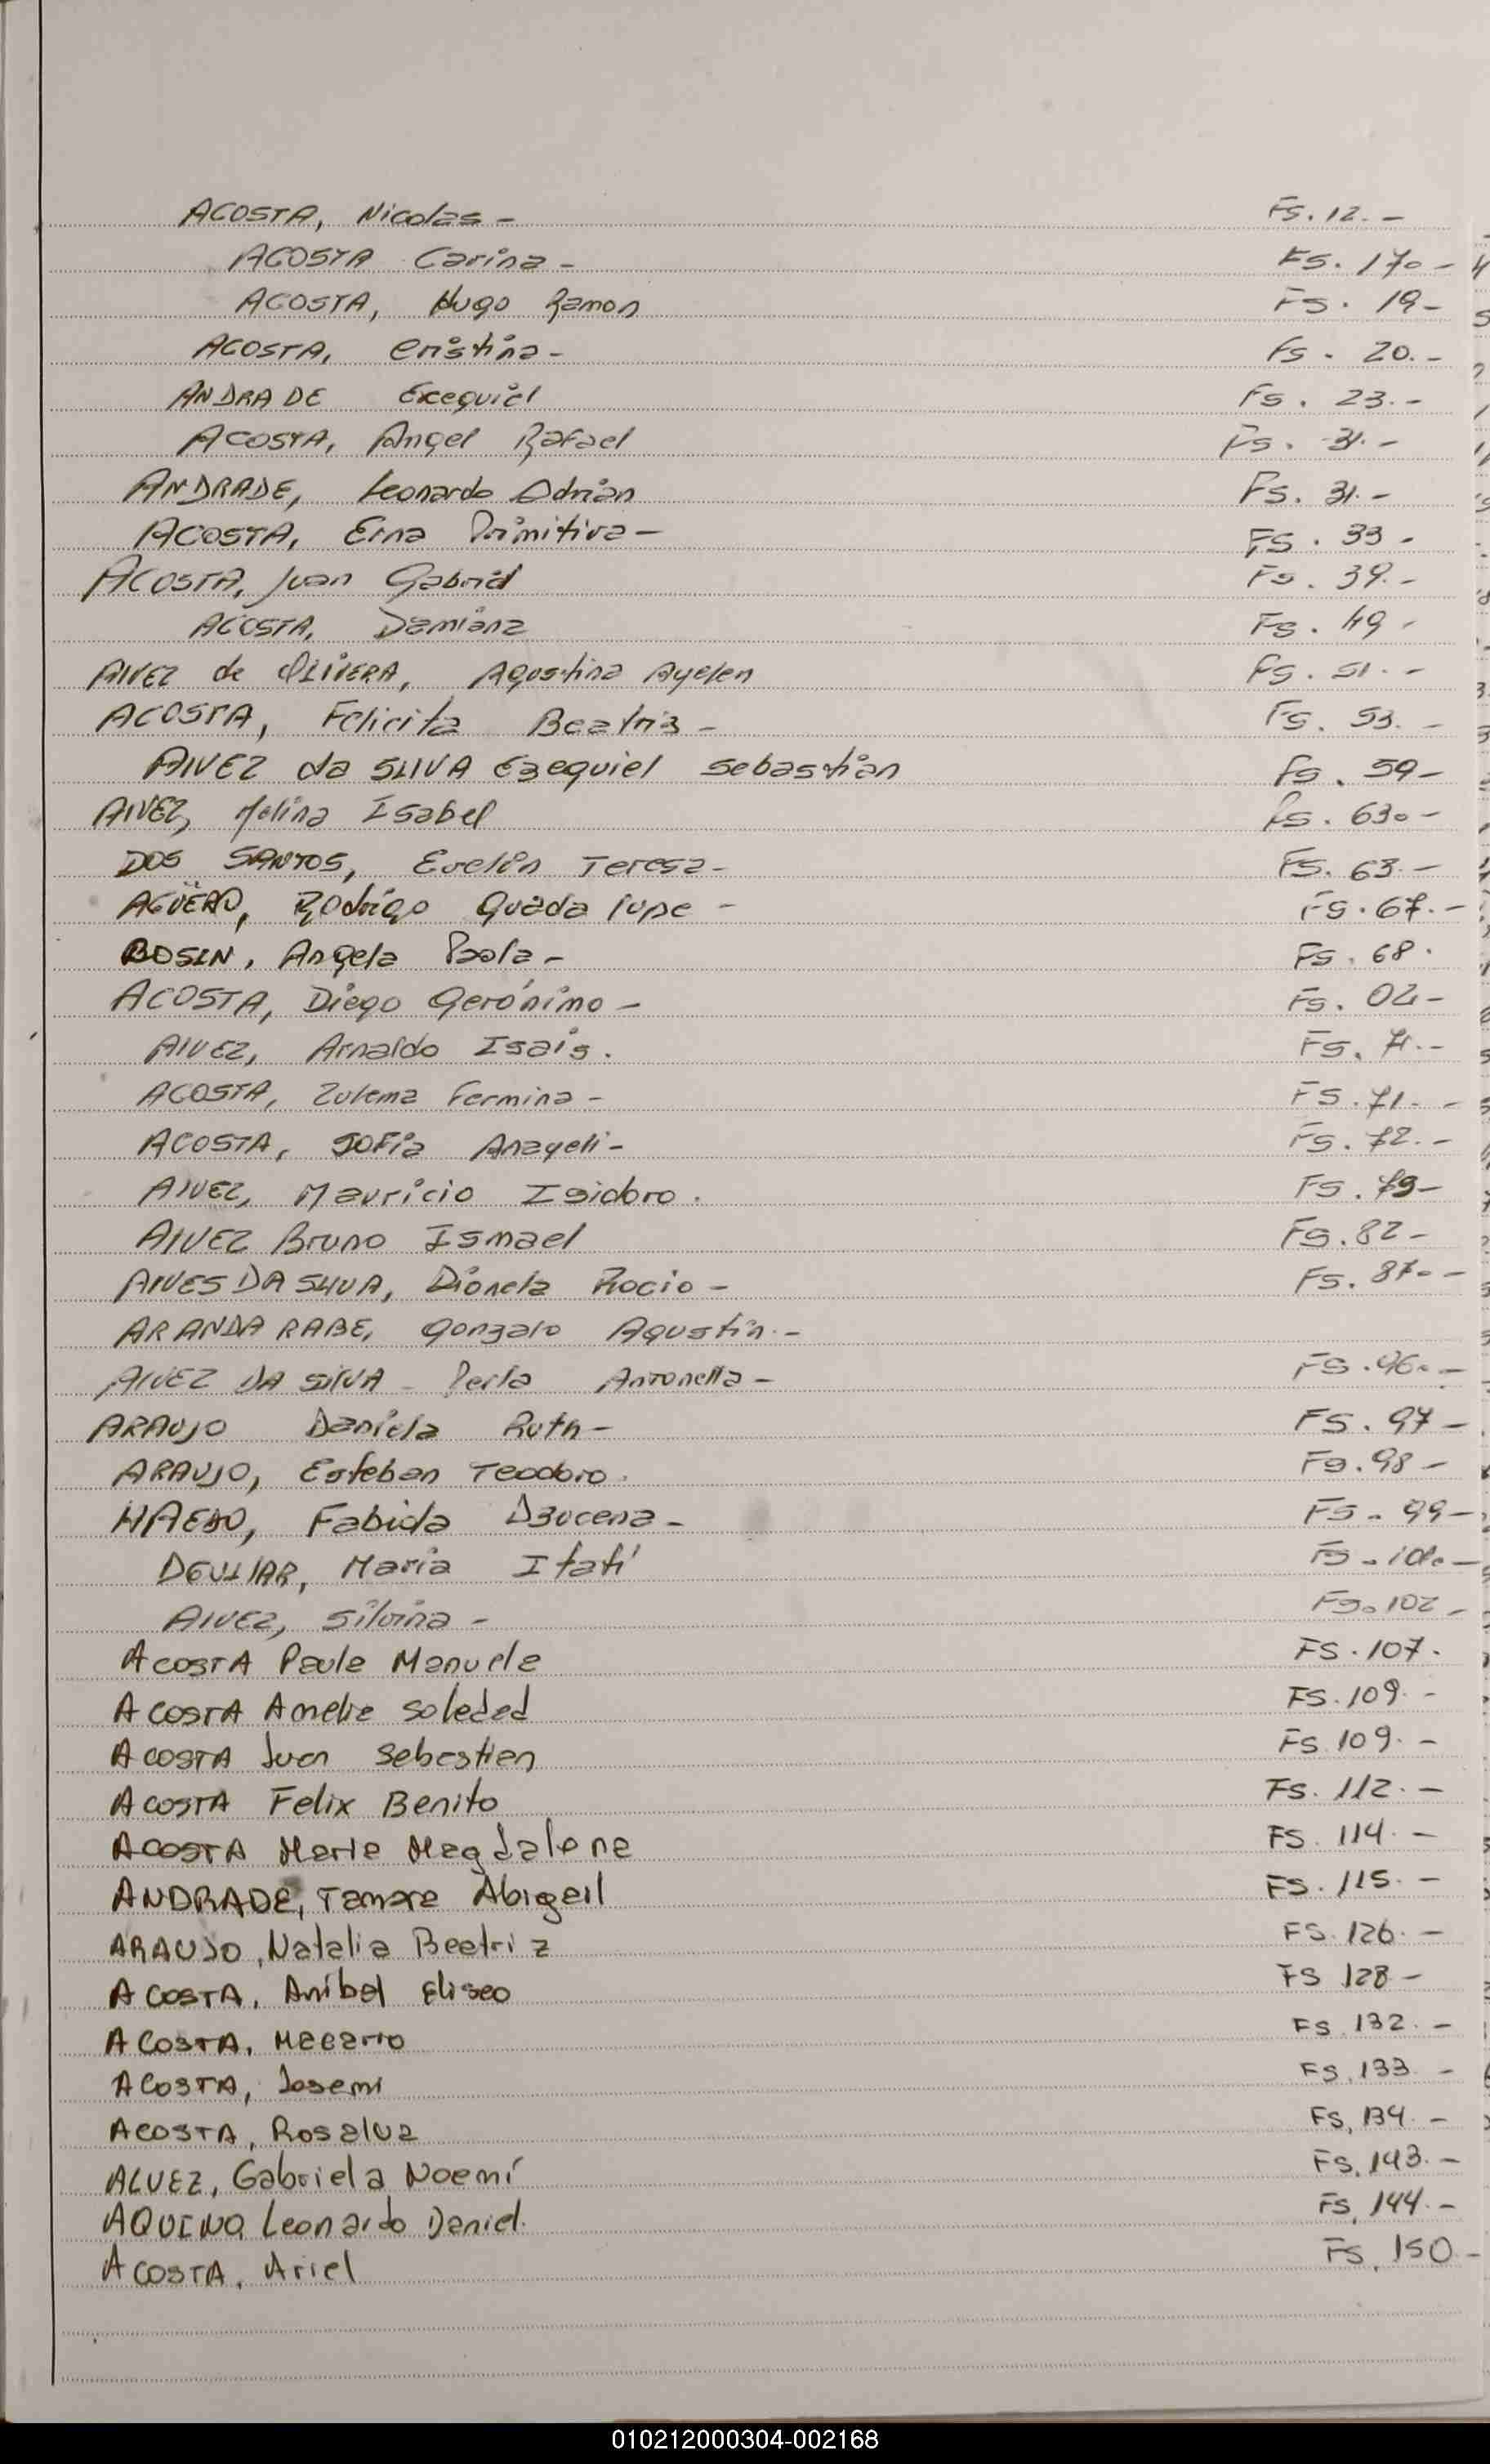 ACOSTA, Nicolas - Fs. 12. -
ACOSTA Carina - Fs. 170 -
ACOSTA, Hugo Ramon Fs. 19 -
ACOSTA, Cristina - Fs. 20. -
ANDRADE Exequiel Fs. 23. -
ACOSTA, Angel Rafael Fs. 31. -
ANDRADE, Leonardo Adrián Fs. 31. -
ACOSTA, Erna Primitiva - Fs. 33 -
ACOSTA, Juan Gabriel Fs. 39. -
ACOSTA, Damiana Fs. 49 -
AlVEZ de OLIVERA, Agostina Ayelen Fs. 51. -
ACOSTA, Felicita Beatriz - Fs. 53. -
AlVEZ da SILVA Ezequiel Sebastián Fs. 59 -
AlVEZ, Melina Isabel Fs. 630 -
DOS SANTOS, Evelin Teresa - Fs. 63. -
AGÜERO, Rodrigo Guadalupe - Fs. 67. -
BOSIN, Angela Paola - Fs. 68.
ACOSTA, Diego Gerónimo - Fs. 02 -
AlVEZ, Arnaldo Isais. Fs. 71. -
ACOSTA, Zulema Fermina - Fs. 71. -
ACOSTA, SOFia Anayeli - Fs. 72. -
AlVEZ, Mauricio Isidoro. Fs. 79 -
AlVEZ Bruno Ismael Fs. 82 -
AlVES DA SILVA, Dionela Rocio - Fs. 870 -
ARANDA RABE, Gonzalo Agustín. -
AlVEZ DA SILVA - Perla Antonella - Fs. 960 -
ARAUJO Daniela Ruth - Fs. 97 -
ARAUJO, Esteban Teodoro. Fs. 98 -
HAEDO, Fabiola Fs. 99 -
Maria Itatí
AlVEZ, Silvina - Fs. 102 -
ACOSTA Paula Manuela Fs. 107.
ACOSTA Amelia Soledad Fs. 109. -
ACOSTA Juan Sebastian Fs 109. -
ACOSTA Felix Benito Fs. 112. -
ACOSTA Maria Magdalena FS. 114. -
ANDRADE, Tamara Abigail FS. 115. -
ARAUJO, Natalia Beatriz FS. 126. -
ACOSTA, Aníbal Eliseo FS 128 -
ACOSTA, Macario FS. 132. -
ACOSTA, Josemi FS. 133. -
ACOSTA, Rosalva FS. 134. -
ALVEZ, Gabriela Noemí FS. 143. -
AQUINO, Leonardo Daniel. FS. 144. -
ACOSTA, Ariel FS. 150. -
010212000304-002168